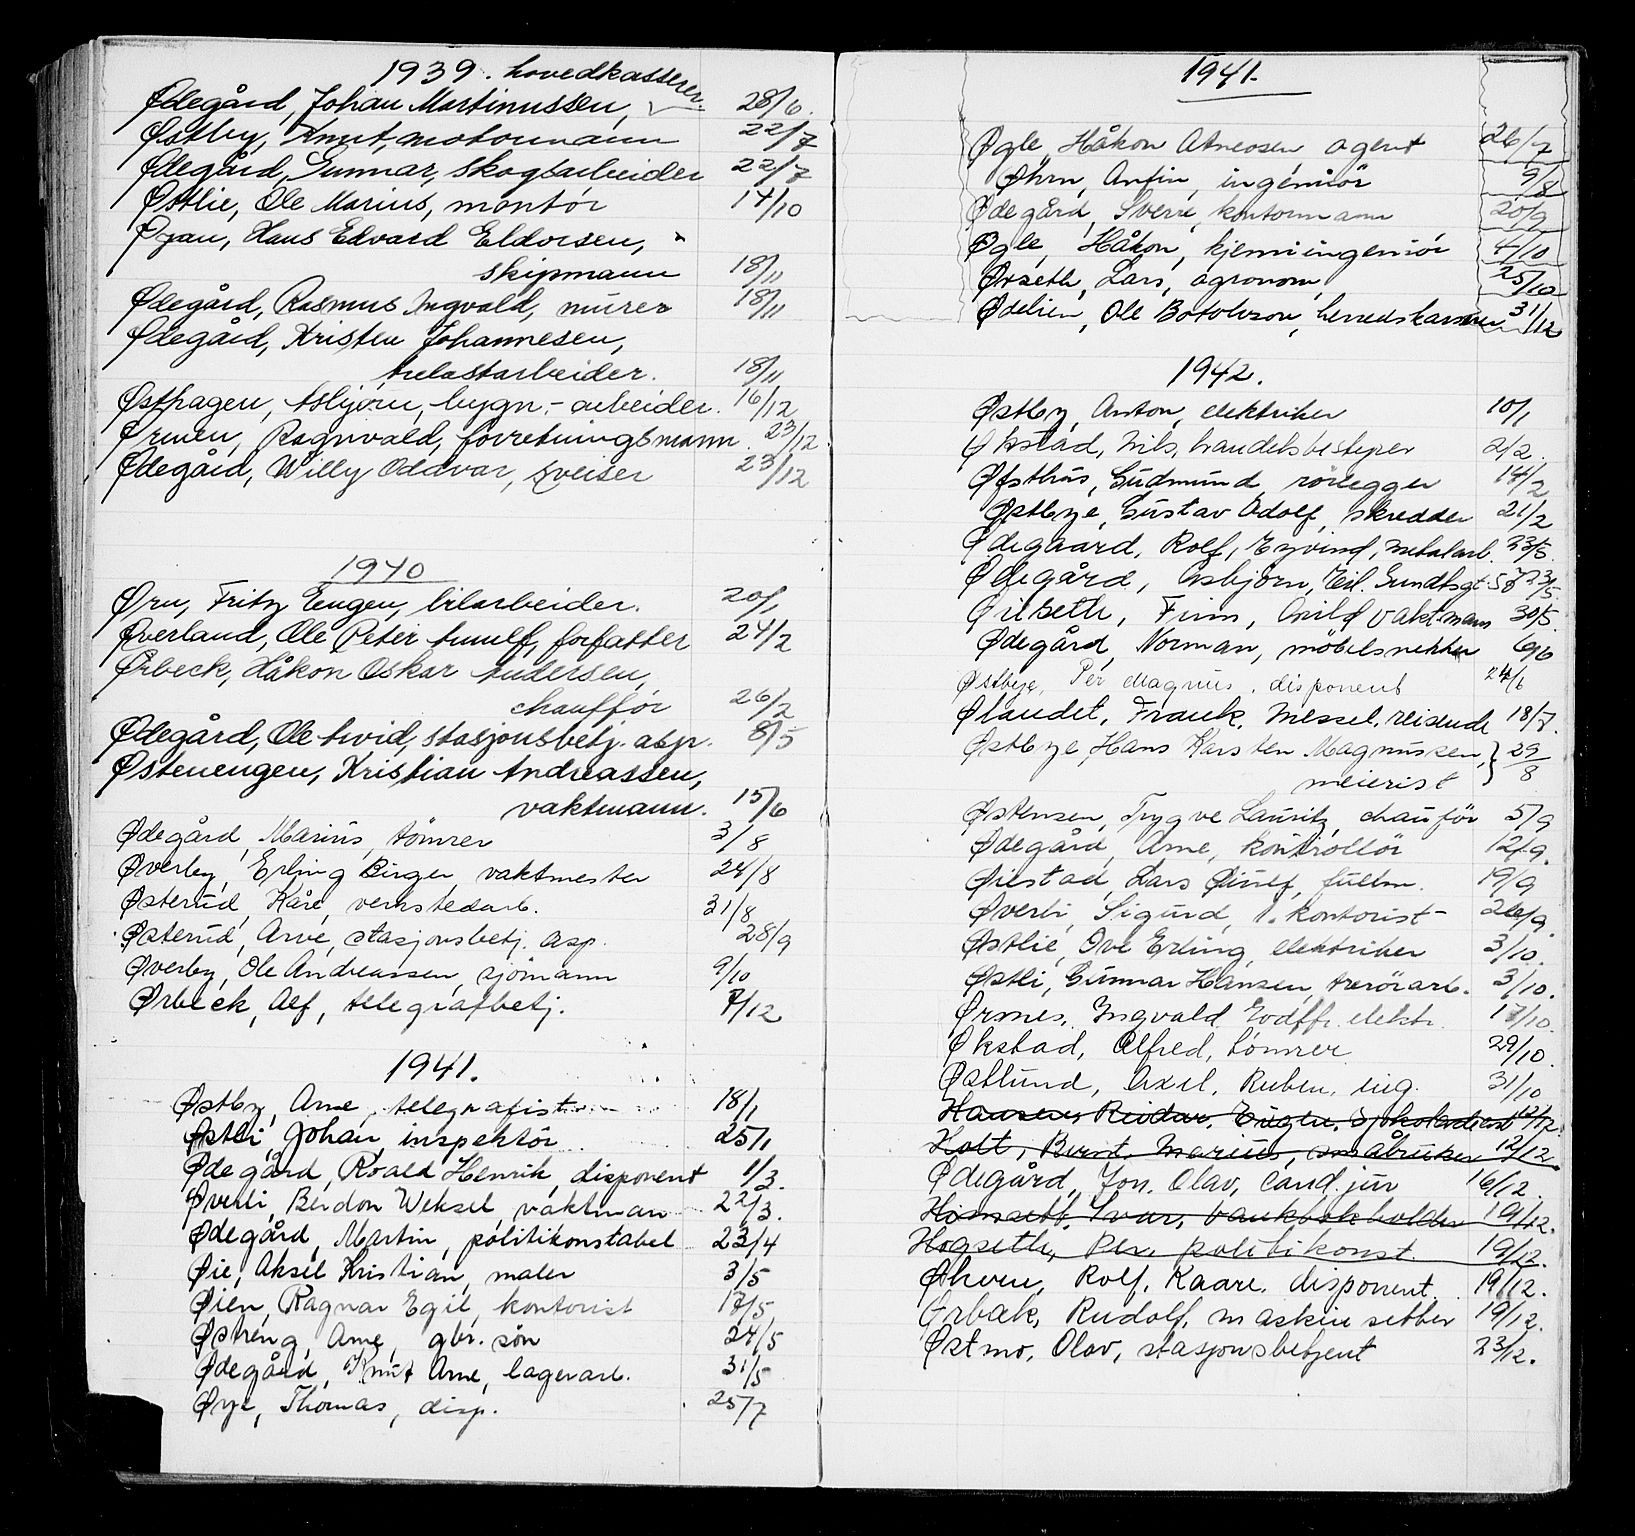 1939. hovedkasserer
Ødegård, Johan Martinussen, 28/6.
Østby, Knut, motormann 22/7
Ødegård, Gunnar, skogsarbeider 22/7
Østlie, Ole Marius, montör 14/10
Øyan, Hans Edvard Eldorsen,
skipmann 18/11
Ødegård, Rasmus Ingvald, murer 18/11
Ødegård, Kristen Johannesen,
trelastarbeider. 18/11
Østhagen, Asbjørn, bygn.-arbeider. 16/12
Ørmen, Ragnvald, forretningsmann. 23/12
Ødegård, Willy Oddvar, sveiser 23/12
1940
Ørn, Fritz Eugen, bilarbeider. 20/1
Øverland, Ole Peter Arnulf, forfatter 24/2
Ørbeck, Håkon Oskar Andersen,
chauffør 26/2
Ødegård, Ole Arvid, stasjonsbetj. asp. 8/5
Østenengen, Kristian Andreassen,
vaktmann. 15/6
Ødegård, Marius, tömrer 3/8
Øverby, Erling Birger, vaktmester 24/8
Østerud, Kåre, verkstedarb. 31/8
Østerud, Arve, stasjonsbetj. asp. 28/9
Øverby, Ole Andreassen, sjömann 9/10
Ørbeck, Alf, telegrafbetj. 7/12
1941.
Østby, Arne, telegrafist 18/1
Østli, Johan, inspektör 25/1
Ødegård, Roald Henrik, disponent 1/3.
Øverli, Berdon Weksel, vaktman 22/3.
Ødegård, Martin, politikonstabel 23/4
Øie, Aksel Kristian, maler 3/5
Øien, Ragnar Egil, kontorist 17/5
Østreng, Arne, gbr. sön 24/5
Ødegård, Knut Arne, lagerarb. 31/5
Øye, Thomas, disp. 25/7
1941.
Øgle, Håkon Atneosen, agent 26/7
Øhrn, Anfin, ingeniör 9/8
Ødegård, Sverre, kontormann 20/9
Øgle, Håkon, kjemiingeniör 4/10
Ørseth, Lars, agronom, 25/10
Ødelien, Ole Botolvson, herredskasserer 31/12
1942.
Østby, Anton, elektriker 10/1
Økstad, Nils, handelsbestyrer 2/2.
Øfsthus, Gudmund, rörlegger 14/2
Østbye, Gustav Adolf, skredder 21/2
Ødegaard, Rolf, Eyvind, metalarb. 23/5
Ødegård, Asbjørn, Eil. Sundtsgt. 58 23/5.
Finn, vaktmann 30/5.
Ødegård, Norman, möbelsnekker 6/6
Østbye, Per Magnus, disponent 24/6
Ølandet, Frank. Messel. reisende 18/7.
Østbye, Hans Karsten Magnussen, } 29/8
meierist
Østensen, Trygve Lauritz, chauför 5/9
Ødegård, Arne, kontrollör 12/9.
Ørestad, Lars Øiulf, fullm. 19/9
Øverli, Sigurd, 1. kontorist- 26/9.
Østlie, Ove Erling, elektriker 3/10.
Østli, Gunnar Hansen, 3/10.
Ørmes, Ingvald Godtfr. elektr. 17/10.
Økstad, Alfred, tömrer 29/10.
Østlund, Axel, Ruben, ing. 31/10
Hansen, Reidar, Eugen, 12/12.
Holt, Bernt, Marius, småbruker 12/12.
Ødegård, Jon. Olav, cand. jur 16/12.
Ivar, bankbokholder 19/12.
Høgseth, Per, politikonst. 19/12.
Øhren, Rolf, Kaare, disponent. 19/12.
Ørbæk, Rudolf, maskinsetter 19/12.
Østmo, Olav, stasjonsbetjent 23/12.